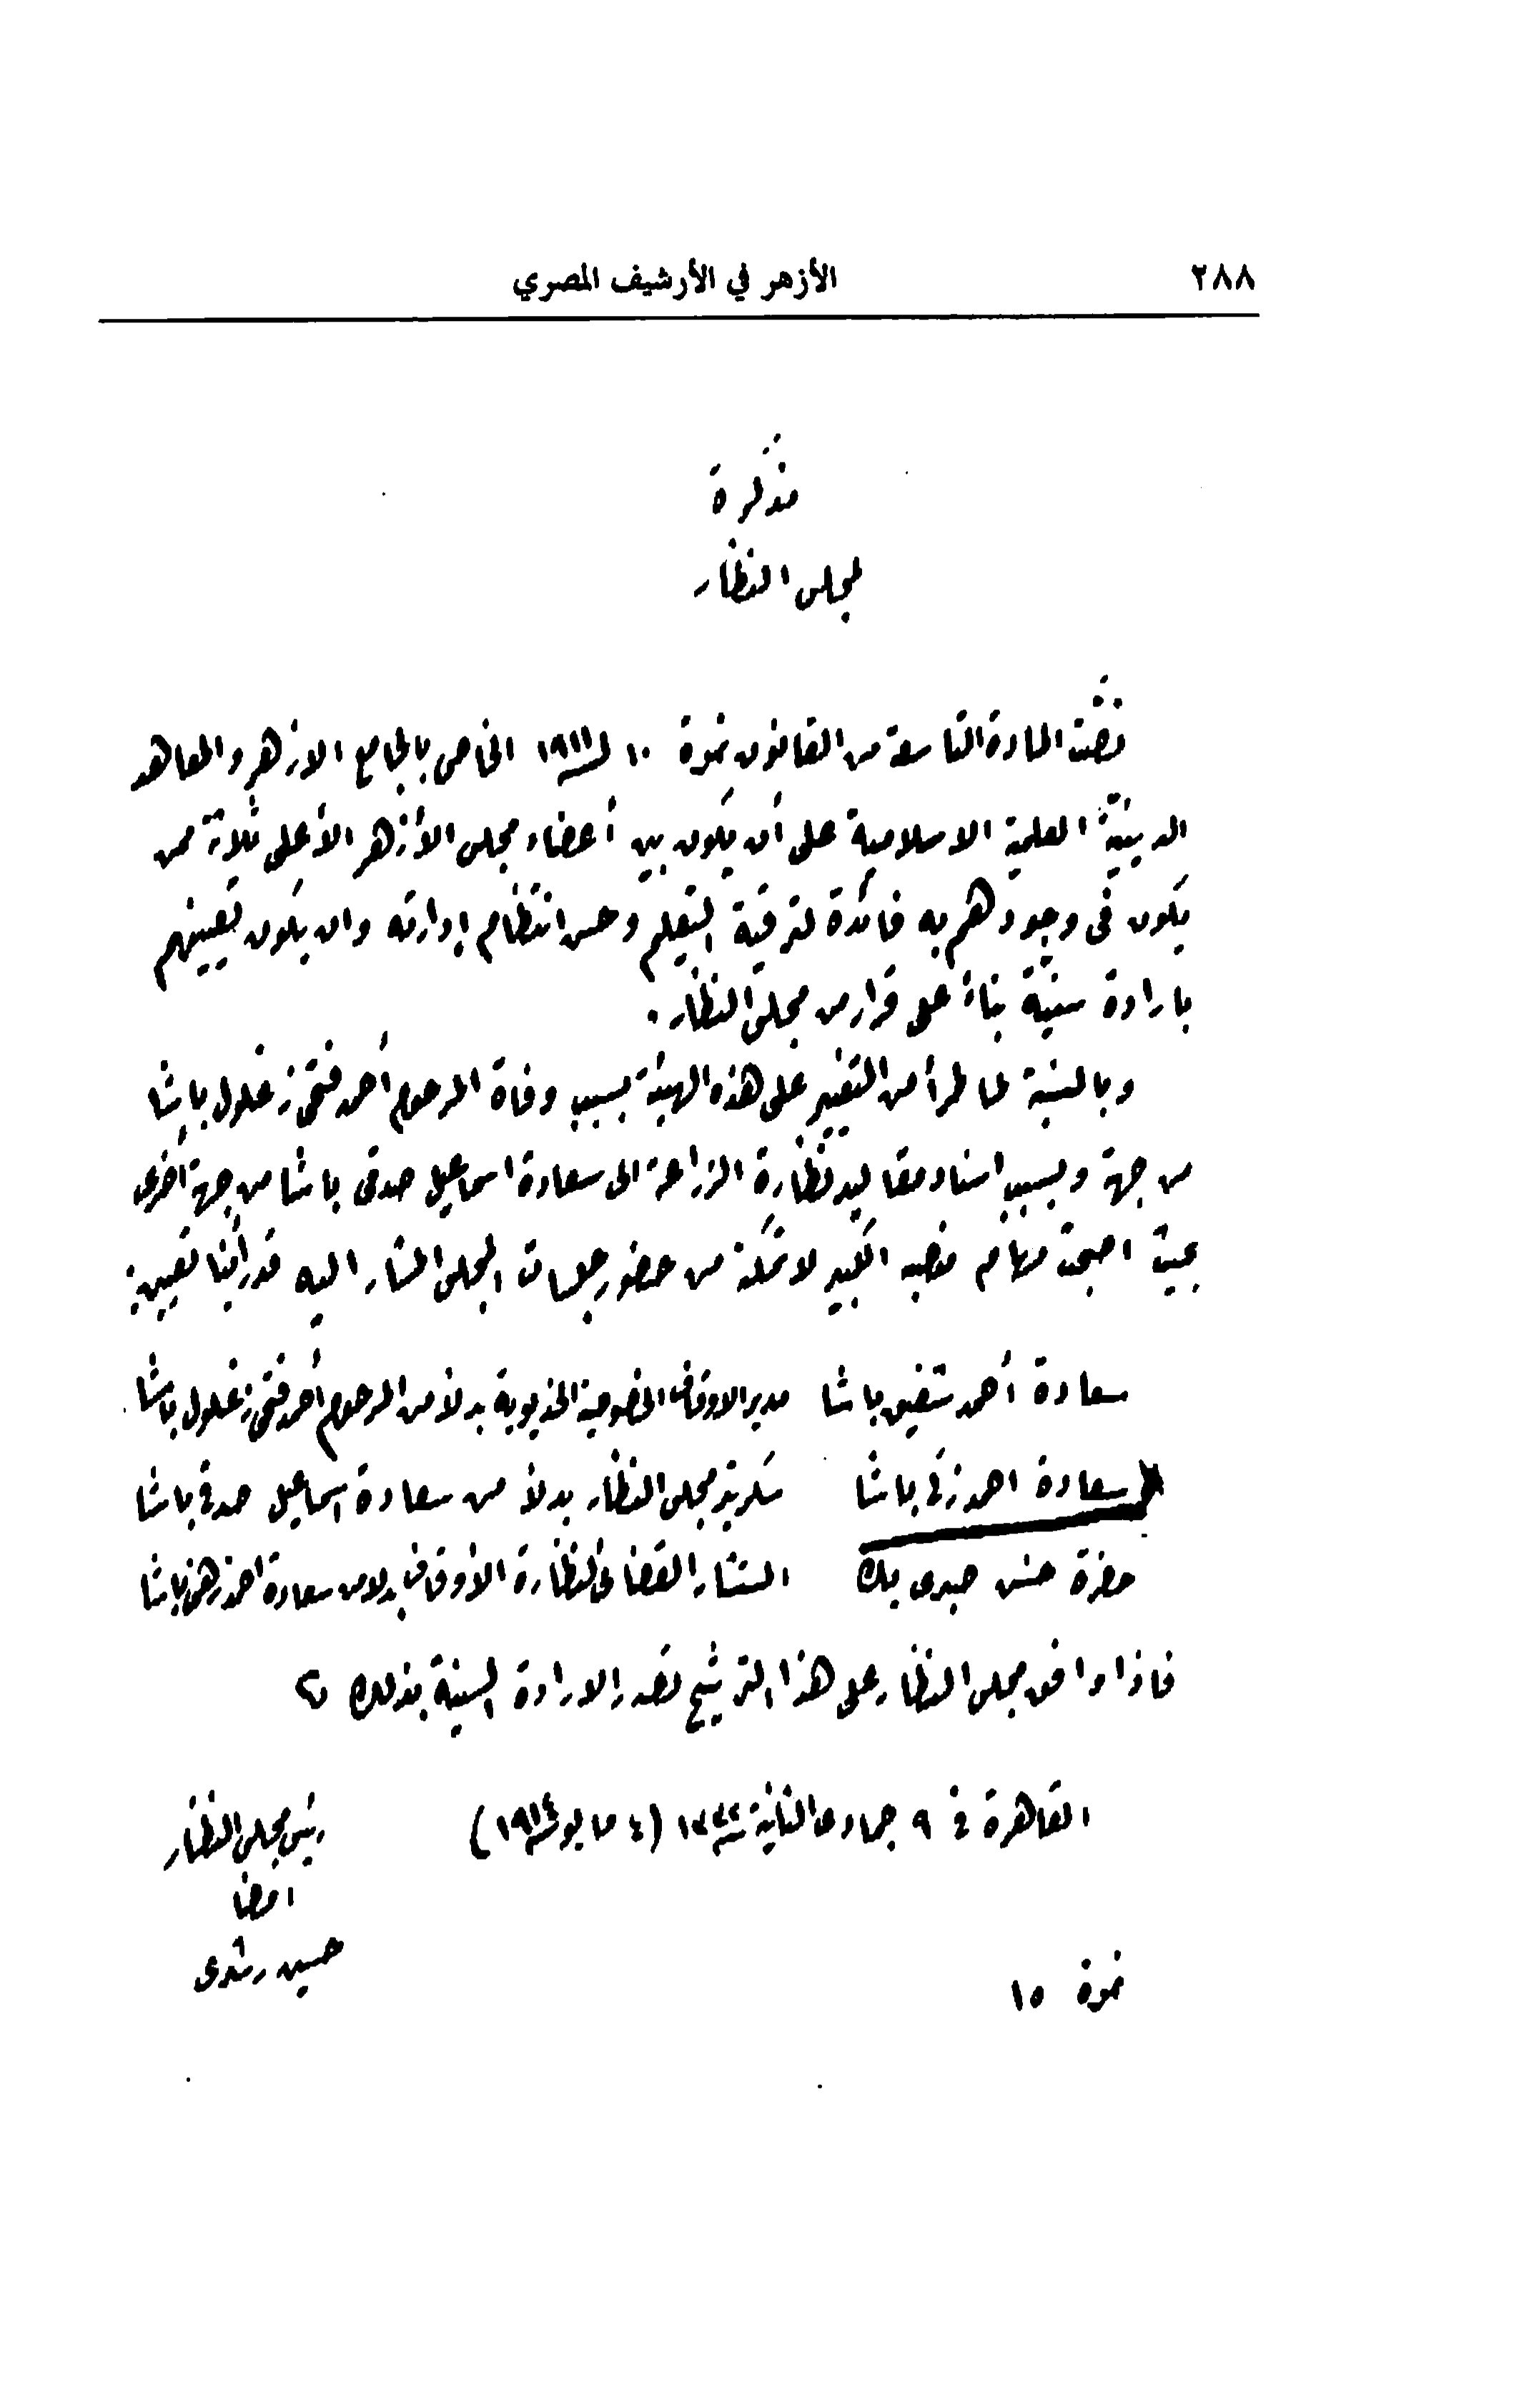 ٢٨٨
الأزهر في الأرشيف المصري
مذكرة
لمجلس النظار
نصّت المادة التاسعة من القانون نمرة ١٠ لسنة ١٩١١ الخاص بالجامع الازهر والمعاهد
الدينيّة العلمية الاسلامية على أن يكون بين أعضاء مجلس الأزهر الأعلى ثلاثة ممن
يكون فى وجودهم به فائدة لترقية التعليم وحسن انتظام إدارته وان يكون تعيينهم
بارادة سنيّة بناءً على قرار من مجلس النظّار.
وبالنسبة لما طرأ من التغيير على هذه الهيئة بسبب وفاة المرحوم أحمد فتحى زغلول باشا
من جهة وبسبب اسناد مقاليد نظارة الزراعة الى سعادة اسماعيل صدقى باشا من جهة أخرى
بحيث اصبحت مهام منصبه الكبير لا تمكنه من حضور جلسات المجلس المشار اليه قد رأينا تعيين:
سعادة أحمد شفيق باشا مدير الاوقاف الخصوصية الخديوية بدلاً من المرحوم أحمد فتحى زغلول باشا
سعادة احمد زكى باشا سكرتير مجلس النظار بدلاً من سعادة اسماعيل صدقى باشا
حضرة حسن صبرى بك المستشار القضائى لنظارة الأوقاف بدلا من سعادة احمد زهنى باشا
فاذا وافق مجلس النظار على هذا الترشيح تصدر الارادة السنية بذلك
القاهرة فى ٩ جمادى الثانية سنة ١٣٣٢ (٤ مايو سنة ١٩١٤)
رئيس مجلس النظار
امضا
حسين رشدى
نمرة ١٥